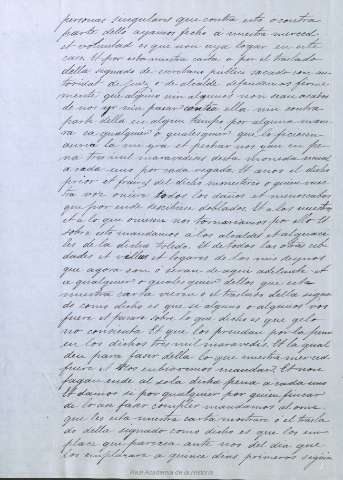 personas singulares que contra esto o contra
parte dello ayamos fecho a nuestra merced
et voluntad es que non aya logar en este
caso. Et por esta nuestra carta o por el traslado
della signado de escribano publico sacado con au-
toridat de juez o de alcalde defendemos firme-
mente que alguno nin algunos non sean osados
de nos yr nin pasar contra ella nin contra
parte della en algun tiempo por alguna mane-
ra ca qualquier o qualesquier que lo ficiesen
auria la mi yra et pechar nos yan en pe-
na tres mil maravedises desta moneda usual
a cada uno por cada vegada. Et a vos el dicho
prior et frayres del dicho monesterio o quien vues-
tra voz oviere todos los danos et menoscabos
que por ende recibiesen doblados. Et a los cuerpos
et a lo que oviesen nos tornariamos por ello. Et
sobre esto mandamos a los alcaldes et alguaci-
les de la dicha Toledo. Et de todas las otras cib-
dades et villas et logares de los mis reynos
que agora son o seran de aqui adelante et
a qualquier o qualesquier dellos que esta
nuestra carta vieren o el traslado della signa-
do como dicho es que si alguno o algunos vos
fuere et pasare sobre lo que dicho es que gelo
non consienta. Et que los prendan por la pena
en los dichos tres mil maravedis. Et la guar-
den para faser della lo que nuestra merced
fuere et nos enbiaremos mandar. Et non
fagan ende al so la dicha pena a cada uno.
Et damos si por qualquier por quien fincar
de lo asi faser complir mandamos al ome
que les esta nuestra carta mostrare o el trasla-
do della signado como dicho es que los en-
place que parezca ante nos del dia que
los emplazare a quince dias primeros seguien
Real Academia de la Historia